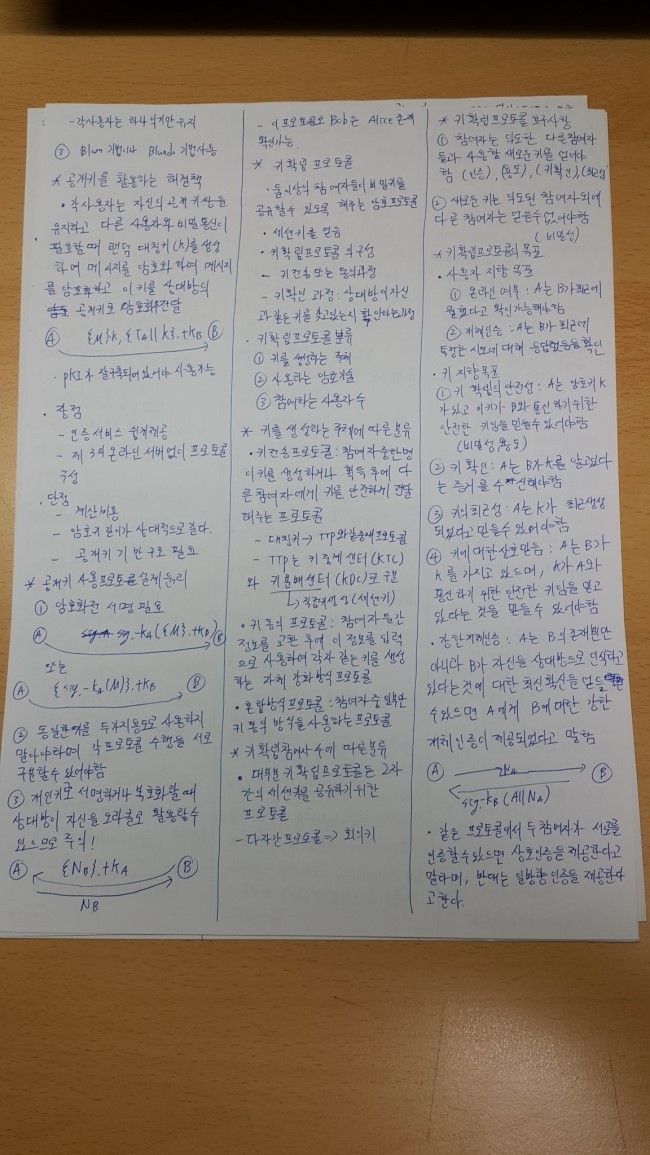 - 각사용자는 하나의키만 유지
③ Blom 기법이나 Blundo 기법사용
* 공개키를 활용하는 해결책
• 각사용자는 자신의 공개키쌍을
유지하고 다른 사용자와 비밀통신이
필요할 때 랜덤 대칭키(K)를 생성
하여 메시지를 암호화 하여 메시지
를 암호화하고 이 키를 상대방의
공개키로 암호화후전달
A {M}.K, {TA||K}.+KB B
• PKI가 잘구축되어있어야 사용가능
• 장점
- 인증서비스 쉽게제공
- 제 3의 온라인 서버없이 프로토콜
구성
• 단점
- 계산비용
- 암호키 길이가 상대적으로 길다.
- 공개키 기반구조 필요
* 공개키 사용프로토콜 설계 원리
① 암호화전 서명 필요
A sig.-KA({M}.+KB) B
또는
A {sig.-KA(M)}.+KB B
② 동일한키를 두가지용도로 사용하지
말아야하며 각 프로토콜 수행을 서로
구분할수 있어야함
③ 개인키로 서명하거나 복호화할 때
상대방이 자신을 오라클로 활용할수
있으므로 주의!
A {NB}.+KA B
NB
- 이 프로토콜로 Bob은 Alice 존재
확인가능.
* 키 확립 프로토콜
• 둘이상의 참여자들이 비밀키를
공유할수 있도록 해주는 암호프로토콜
• 세션키를 얻음
• 키확립프로토콜의 구성
- 키전송 또는 동의과정
- 키확인 과정: 상대방이 자신
과 같은 키를 갖고있는지 확인하는과정
• 키 확립프로토콜 분류
① 키를 생성하는 주체
② 사용하는 암호기술
③ 참여하는 사용자 수
* 키를 생성하는 주체에 따른분류
• 키전송프로토콜: 참여자 중한명
이 키를 생성하거나 획득 후에 다
른 참여자에게 키를 안전하게 전달
해주는 프로토콜
- 대칭키 → TTP와 같은중재프로토콜
- TTP는 키중계센터(KTC)
와 키분배센터(KDC)로 구분
→ 직접키생성(세션키)
• 키 동의 프로토콜: 참여자 들간
정보를 교환 후에 이 정보를 입력
으로 사용하여 각자 같은 키를 생성
하는 자체 강화방식 프로토콜
• 혼합방식 프로토콜: 참여자중 일부만
키 동의 방식을 사용하는 프로토콜
* 키확립참여자수에 따른분류
• 대부분 키확립프로토콜은 2자
간의 세션키를 공유하기위한
프로토콜
- 다자간프로토콜 => 회의키
* 키 확립 프로토콜 요구사항
① 참여자는 의도한 다른참여자
들과 사용할 새로운키를 얻어야
함 (인증), (용도), (키확인), (최신성)
② 새로운 키는 의도된 참여자 외에
다른 참여자는 얻을수없어야함
(비밀성)
* 키확립프로토콜의 목표
• 사용자 지향 목표
① 온라인 여부: A는 B가 최근에
활동했다고 확인가능해야함
② 개체인증: A는 B가 최근에
특정한 시도에 대해 응답했음을 확인
• 키 지향목표
① 키 확립의 안전성: A는 암호키 K
가 있고 이키가 B와 통신 하기위한
안전한 키임을 믿을수 있어야함
(비밀성,용도)
② 키 확인: A는 B가 K를 알고있다
는 증거를 수신해야함
③ 키의최근성: A는 K가 최근생성
되었다고 믿을수 있어야함
④ 키에대한상호믿음: A는 B가
K를 가지고 있으며, K가 A와
통신하기 위한 안전한 키임을 믿고
있다는 것을 믿을수 있어야함
• 강한개체인증: A는 B의존재뿐만
아니라 B가 자신을 상대방으로 인식하고
있다는것에 대한 최신확신을 얻을
수있으면 A에게 B에대한 강한
개체인증이 제공되었다고 말함
A NA B
sig.-KB(A||NA)
• 같은 프로토콜에서 두 참여자가 서로를
인증할수있으면 상호인증을 제공한다고
말하며, 반대는 일방향 인증을 제공한다
고 한다.